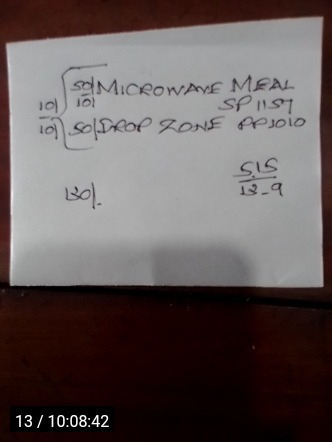 50/ MICROWAVE MEAL
101 101 SP 1157
101 50/ DROP ZONE PP1010
5.15
130/. 13-9
13 / 10:08:42